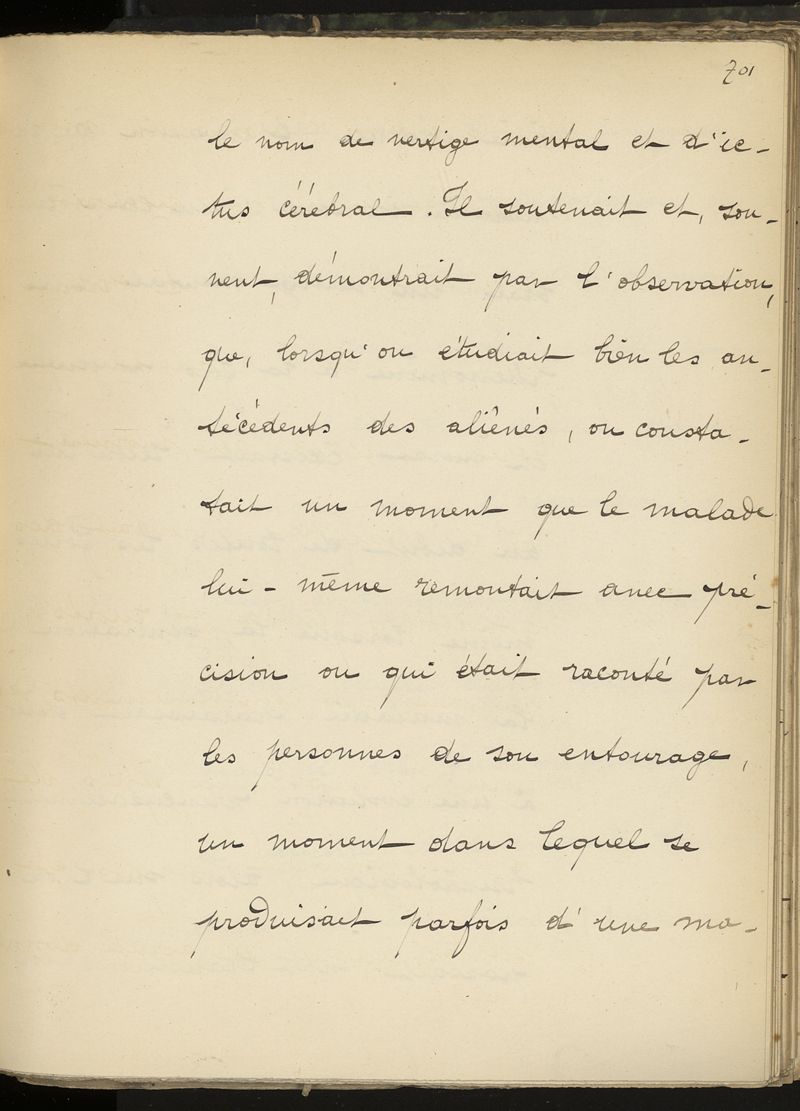 701
le nom de vertige mental et d'ic-
tus cérébral. Il soutenait et, sou-
vent, démontrait par l'observation,
que, lorsqu'on étudiait bien les an-
técédents des aliénés, on consta-
tait un moment que le malade
lui-même remontait avec pré-
cision ou qui était raconté par
les personnes de son entourage,
un moment dans lequel se
produisait parfois d'une ma-